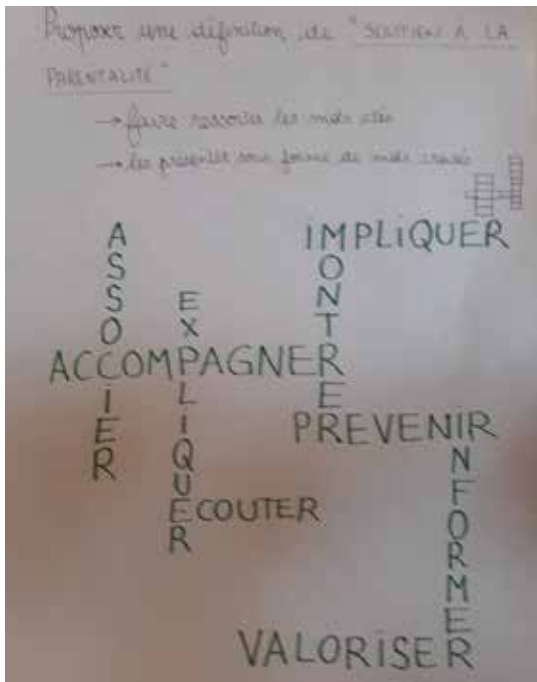 Proposer une définition de "SOUTIEN À LA
PARENTALITÉ"
→ faire ressortir les mots clés
→ les présenter sous forme de mots croisés
ASSOCIER
IMPLIQUER
MONTRER
EXPLIQUER
ACCOMPAGNER
PREVENIR
ECOUTER
INFORMER
VALORISER